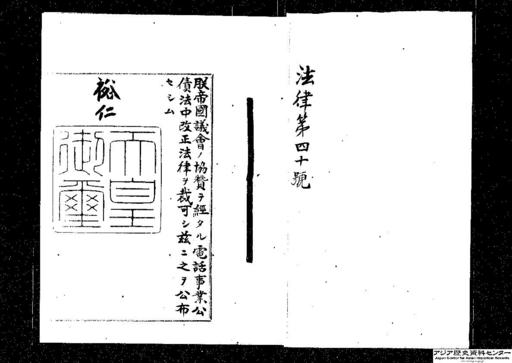 法律第四十號
朕帝國議會ノ協贊ヲ經タル電話事業公
債法中改正法律ヲ裁可シ茲ニ之ヲ公布
セシム
裕仁
天皇
御璽
アジア歴史資料センター
Japan Center for Asian Historical Records